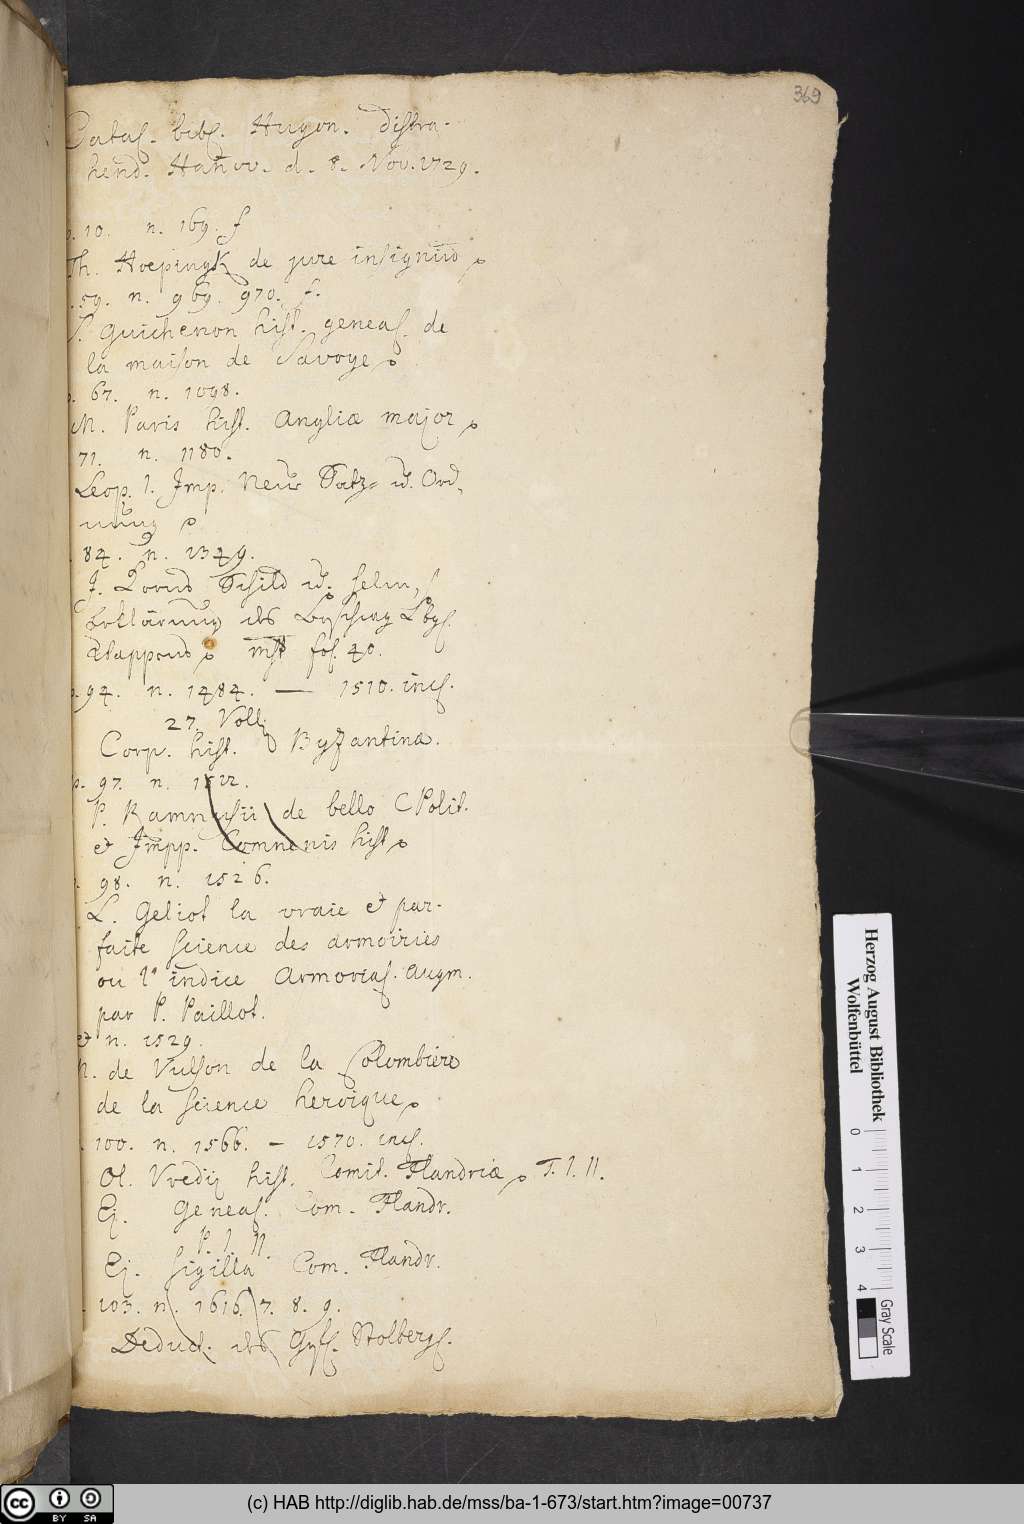 369
Catal. bibl. Hugon. distra-
hend. Hanov. d. 8. Nov. 1729.
p. 10. n. 169. f
Th. Hoepingk de jure insignium
59. n. 969. 970. f.
S. Guichenon hist. geneal. de
la maison de Savoye
p. 67. n. 1098.
M. Paris hist. Angliæ major
71. n. 1180.
Leop. I. Imp. Neue Satz- u. Ord-
nung
84. n. 1349.
J. Schild u. Helm,
Erklärung des
Wappens Mst fol. 40.
p. 94. n. 1484. — 1510. incl.
27. Voll.
Corp. hist. Byzantinæ.
p. 97. n. 1522.
P. Ramnusii de bello CPolit.
et Impp. Comnenis hist
98. n. 1526.
L. Geliot la vraie et par-
faite science des armoiries
ou l'indice Armorial. augm.
par P. Paillot.
et n. 1529.
M. de Vulson de la Colombiere
de la science heroique
100. n. 1566. — 1570. incl.
Ol. Vredij hist. Comit. Flandriæ T. I. II.
Ej. Geneal. Com. Flandr.
P. I. II.
Ej. Sigilla Com. Flandr.
103. n. 1616. 7. 8. 9.
Deduct. des Stolberg.
Herzog August Bibliothek
Wolfenbüttel
0 1 2 3 4
Gray Scale
CC BY SA
(c) HAB http://diglib.hab.de/mss/ba-1-673/start.htm?image=00737